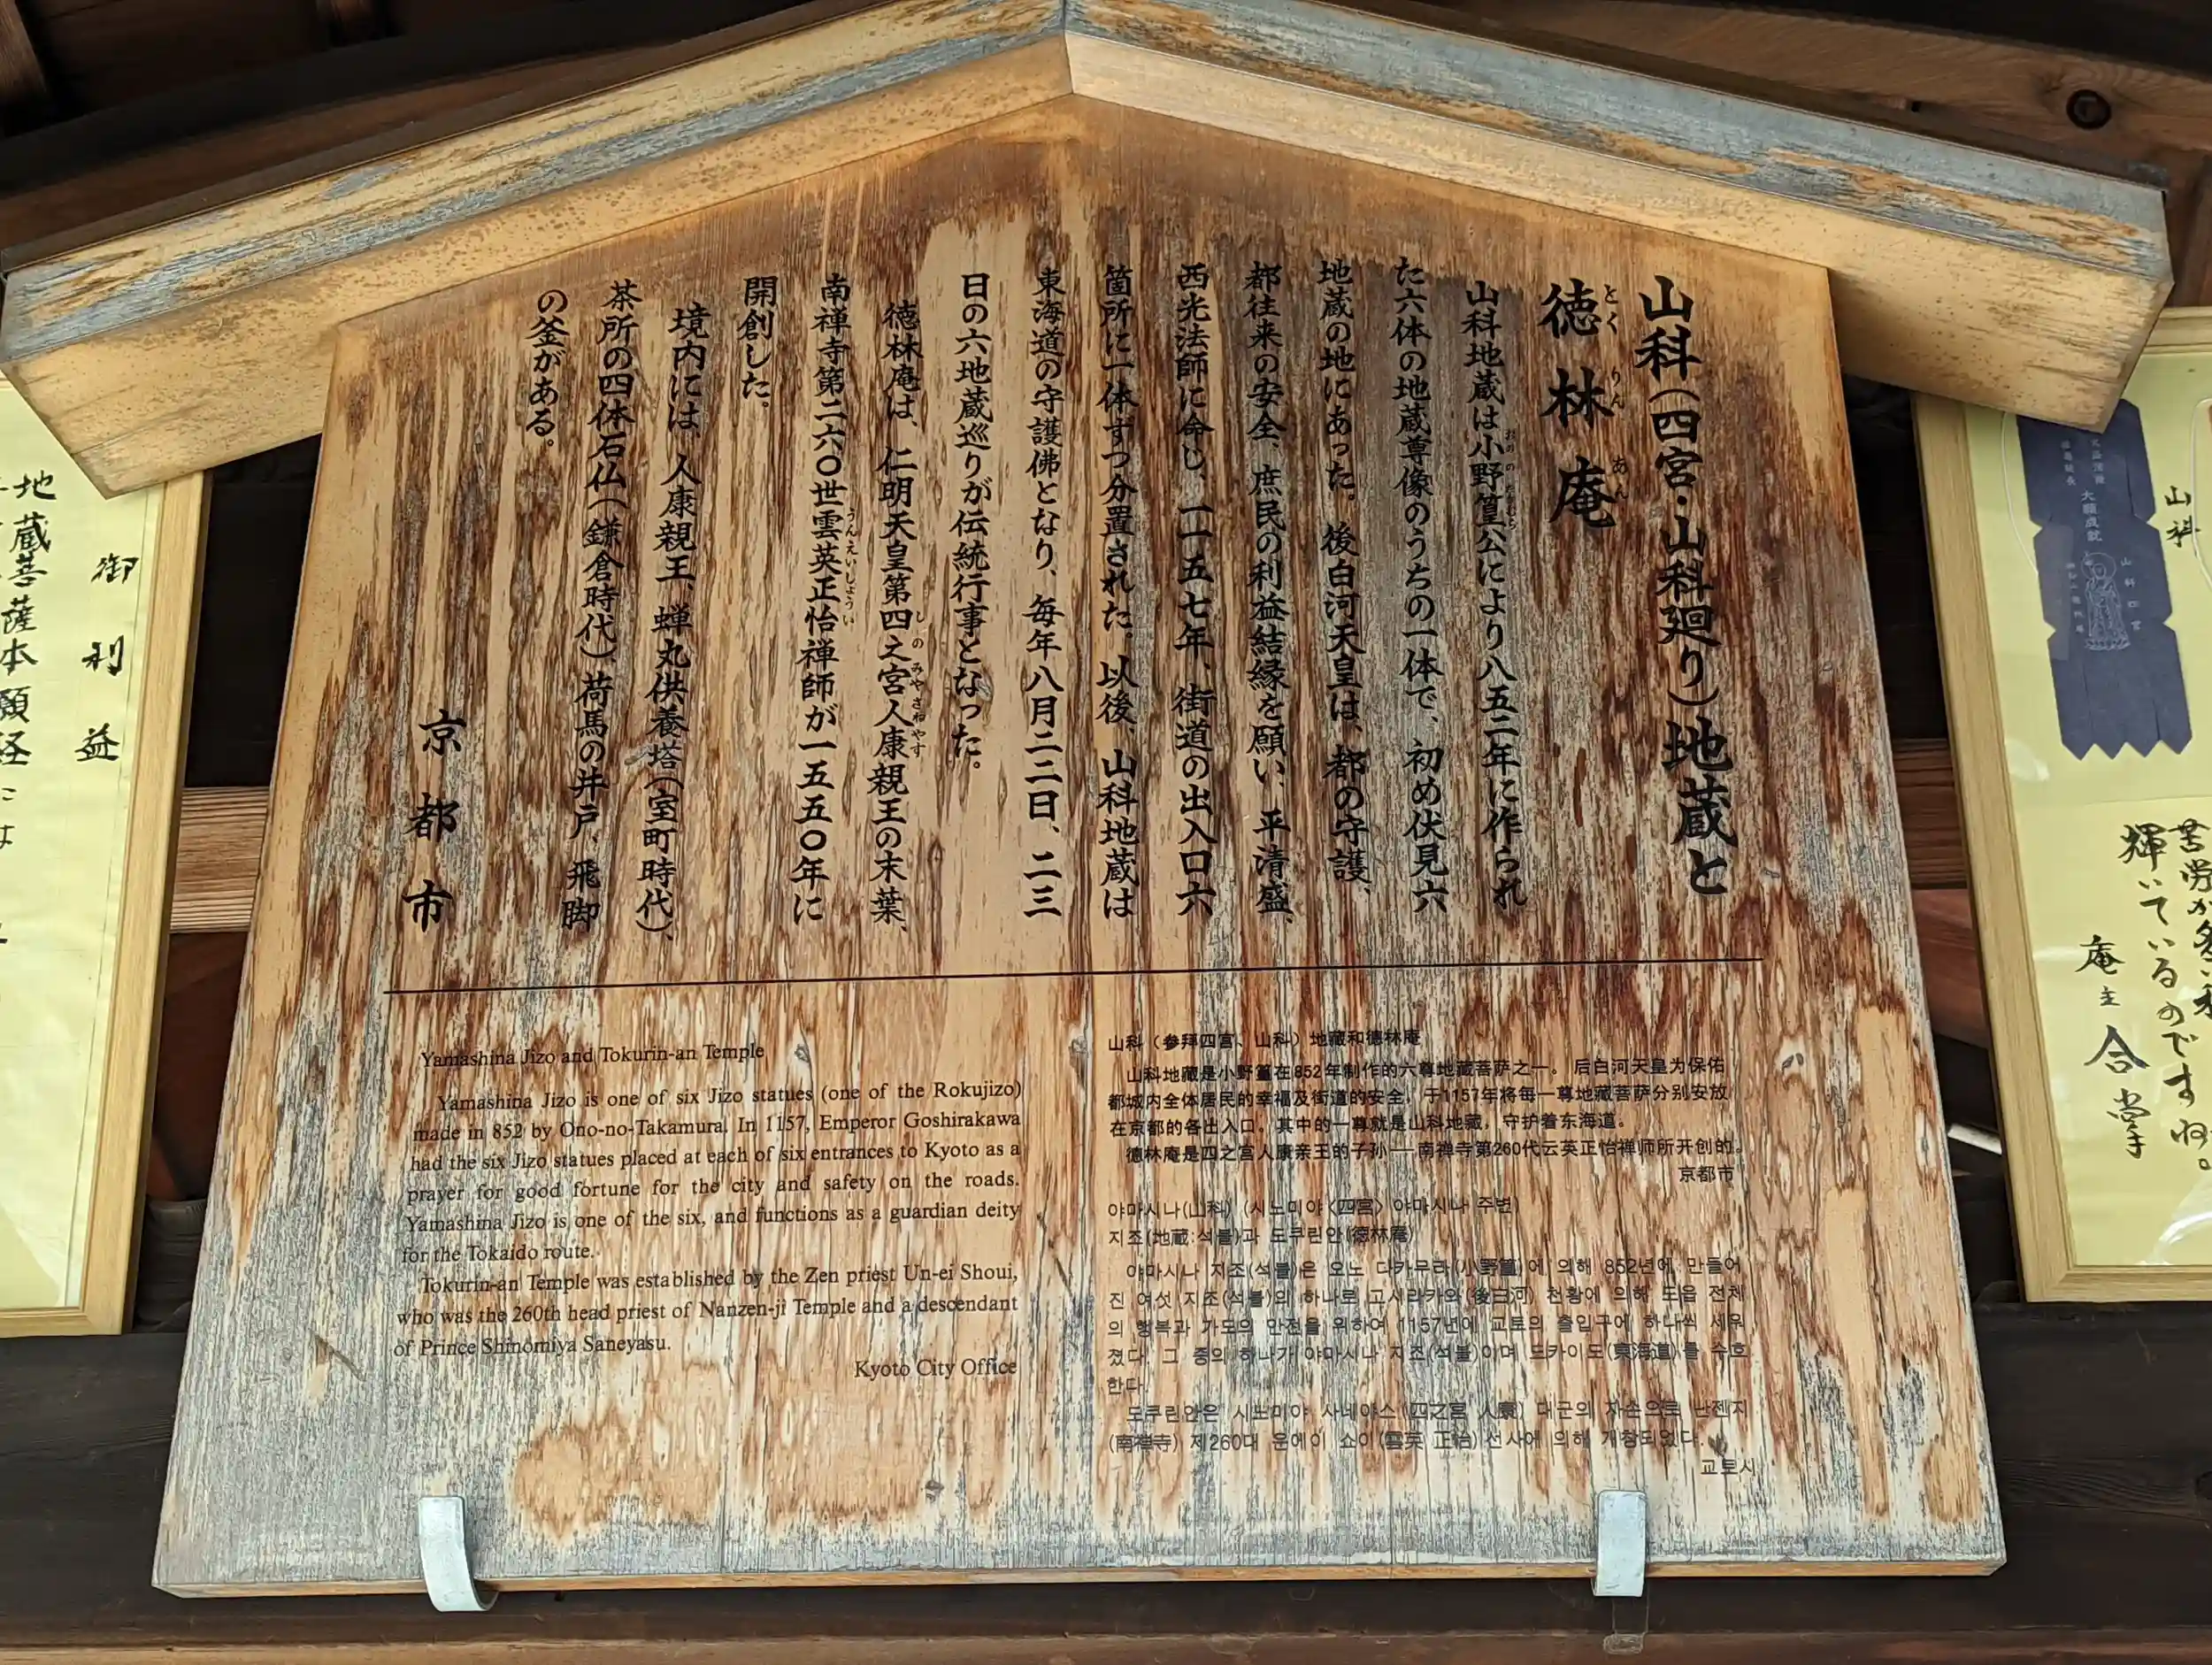 山科(四宮・山科廻り)地蔵と
徳林庵
とくりんあん
山科地蔵は小野篁公により八五二年に作られ
おののたかむら
た六体の地蔵尊像のうちの一体で、初め伏見六
地蔵の地にあった。後白河天皇は、都の守護、
都往来の安全、庶民の利益結縁を願い、平清盛、
西光法師に命じ、一一五七年、街道の出入口六
箇所に一体ずつ分置された。以後、山科地蔵は
東海道の守護佛となり、毎年八月二二日、二三
日の六地蔵巡りが伝統行事となった。
徳林庵は、仁明天皇第四之宮人康親王の末葉、
しのみやさねやす
南禅寺第二六〇世雲英正怡禅師が一五五〇年に
うんえいしょうい
開創した。
境内には、人康親王、蝉丸供養塔(室町時代)、
茶所の四体石仏(鎌倉時代)、荷馬の井戸、飛脚
の釜がある。
京都市
Yamashina Jizo and Tokurin-an Temple
Yamashina Jizo is one of six Jizo statues (one of the Rokujizo)
made in 852 by Ono-no-Takamura. In 1157, Emperor Goshirakawa
had the six Jizo statues placed at each of six entrances to Kyoto as a
prayer for good fortune for the city and safety on the roads.
Yamashina Jizo is one of the six, and functions as a guardian deity
for the Tokaido route.
Tokurin-an Temple was established by the Zen priest Un-ei Shoui,
who was the 260th head priest of Nanzen-ji Temple and a descendant
of Prince Shinomiya Saneyasu.
Kyoto City Office
山科（参拜四宫、山科）地藏和德林庵
山科地藏是小野篁在852年制作的六尊地藏菩萨之一。后白河天皇为保佑
都城内全体居民的幸福及街道的安全，于1157年将每一尊地藏菩萨分别安放
在京都的各出入口。其中的一尊就是山科地藏，守护着东海道。
德林庵是四之宫人康亲王的子孙——南禅寺第260代云英正怡禅师所开创的。
京都市
야마시나(山科) (시노미야〈四宮〉야마시나 주변)
지조(地蔵:석불)과 도쿠린안(徳林庵)
야마시나 지조(석불)은 오노 다카무라(小野篁)에 의해 852년에 만들어
진 여섯 지조(석불)의 하나로 고시라카와(後白河) 천황에 의해 도읍 전체
의 행복과 가도의 안전을 위하여 1157년에 교토의 출입구에 하나씩 세워
졌다. 그 중의 하나가 야마시나 지조(석불)이며 도카이도(東海道)를 수호
한다.
도쿠린안은 시노미야 사네야스(四之宮 人康) 대군의 자손으로 난젠지
(南禅寺) 제260대 운에이 쇼이(雲英 正怡)선사에 의해 개창되었다.
교토시
御利益
地蔵菩薩本願経には
山科
大願成就
山科四宮
輝いているのですね。
庵主 合掌